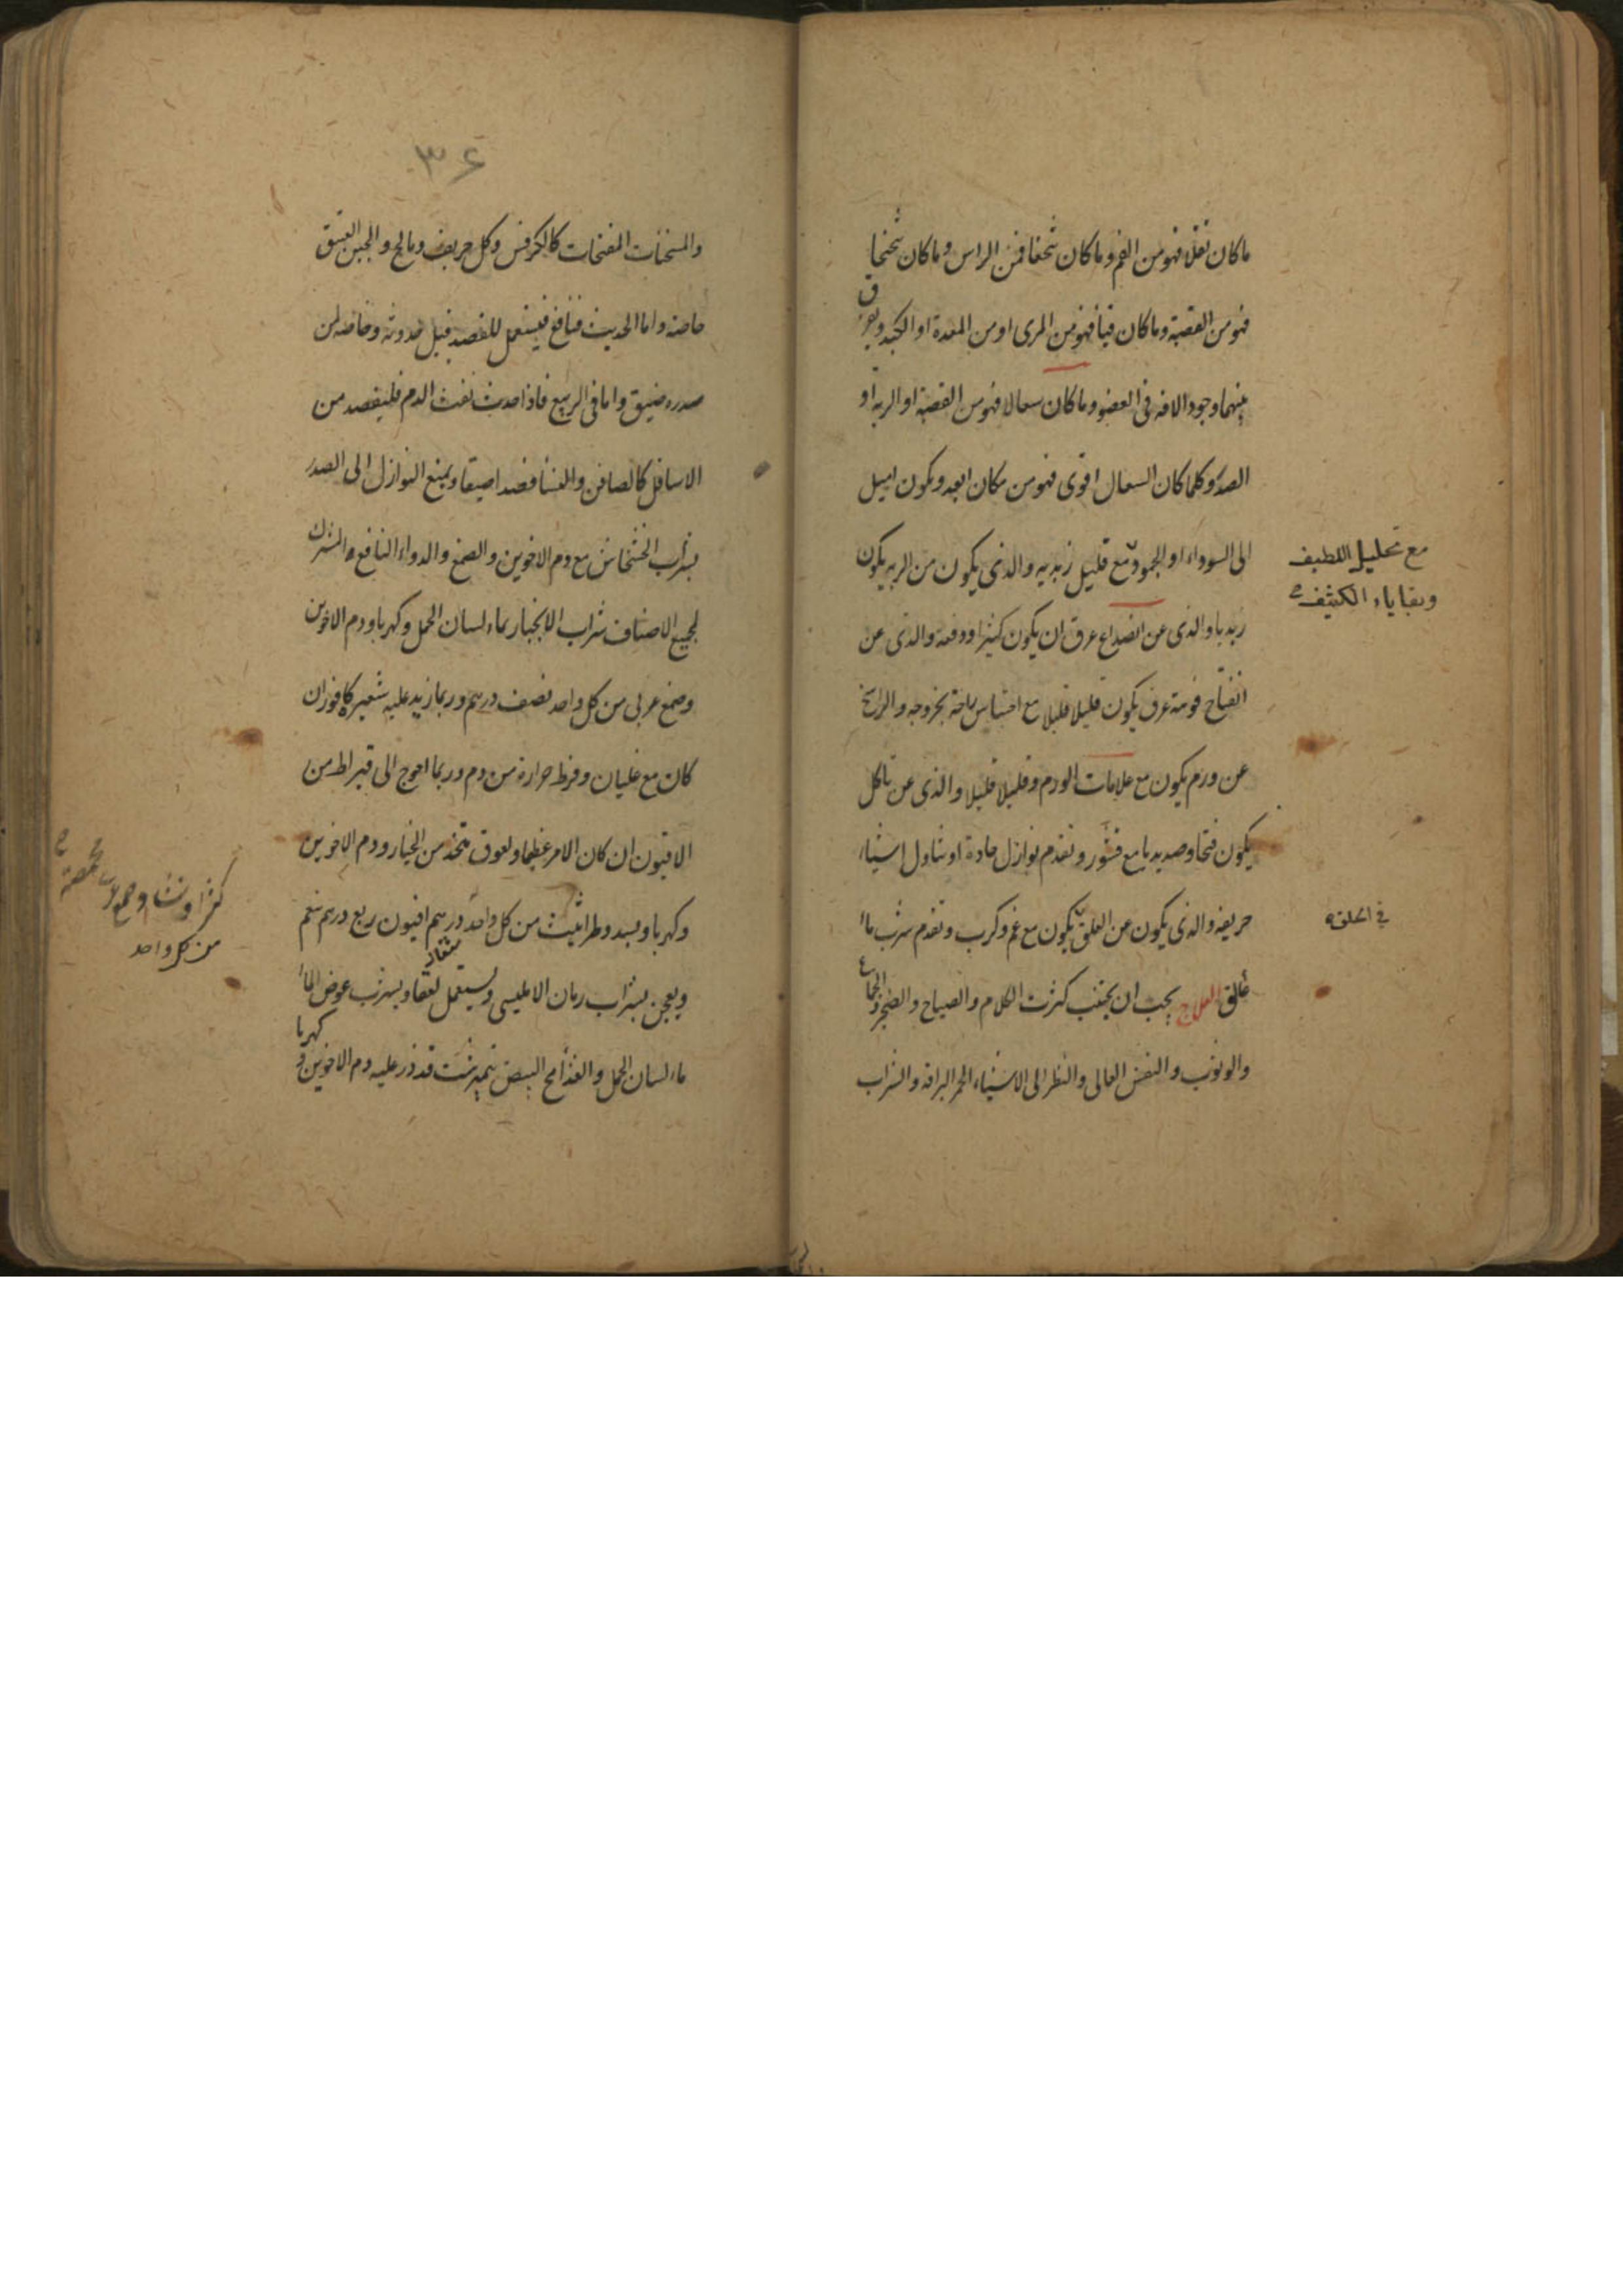 ما كان تفلا فهو من الفم وما كان تنخعا فمن الراس وما كان تنحنحا
فهو من القصبة وما كان قيأ فهو من المرى او من المعدة او الكبد ويفرق
بينهما وجود الافه فى العضو وما كان سعالا فهو من القصبة او الريه او
الصدر وكلما كان السعال اقوى فهو من مكان ابعد ويكون اميل
الى السوداء او الجمود مع قليل زبديه والذى يكون من الريه يكون
مع تحليل اللطيف
وبقاياء الكثيف
زبديا والذى عن انصداع عرق ان يكون كثيرا ودفعة والذى عن
انفتاح فوهة عرق يكون قليلا قليلا مع احتباس راحة بخروجه والراشح
عن ورم يكون مع علامات الورم وقليلا قليلا والذى عن تاكل
يكون قيحا وصديديا مع قشور وتقدم نوازل حادة او تناول اشياء
حريفه والذى يكون عن العلق يكون مع غم وكرب وتقدم شرب ماء
فى الحلق
عالق العلاج يجب ان يجتنب كثرت الكلام والصياح والضجر والجماع
والوثوب والنفس العالى والنظر الى الاشياء الحمر البراقه والشراب
٣٤
والمسخنات المفتحات كالكرفس وكل حريف ومالح والجبن العتيق
خاصة واما الحديث فنافع فيستعمل للفصد قبل حدوثه وخاصه لمن
صدره ضيق واما فى الربيع فاذا حدث نفث الدم فليفصد من
الاسافل كالصافن والنسا فصدا ضيقا ويمنع النوازل الى الصدر
بشراب الخشخاش مع دم الاخوين والصمغ والدواء النافع المشترك
لجميع الاصناف شراب الانجبار بماء لسان الحمل وكهربا ودم الاخوين
وصمغ عربى من كل واحد نصف درهم وربما زيد عليه شعير كافور ان
كان مع غليان وفرط حرارة من دم وربما احوج الى قيراط من
الافيون ان كان الامر عظيما ولعوق متخذ من الخيار ودم الاخوين
وكهربا وبسد وطراثيث من كل واحد درهم افيون ربع درهم ينعم
كثيرا ونشا وصمغ
من كل واحد
مثقال
ويعجن بشراب رمان الامليسى ويستعمل لعقا ويشرب عوض الماء
ماء لسان الحمل والغذا مح البيض نيمبرشت قد ذر عليه دم الاخوين و
كهربا